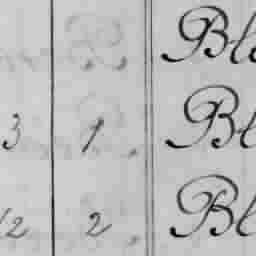 Bl
3 1 Bl
12 2 Bl